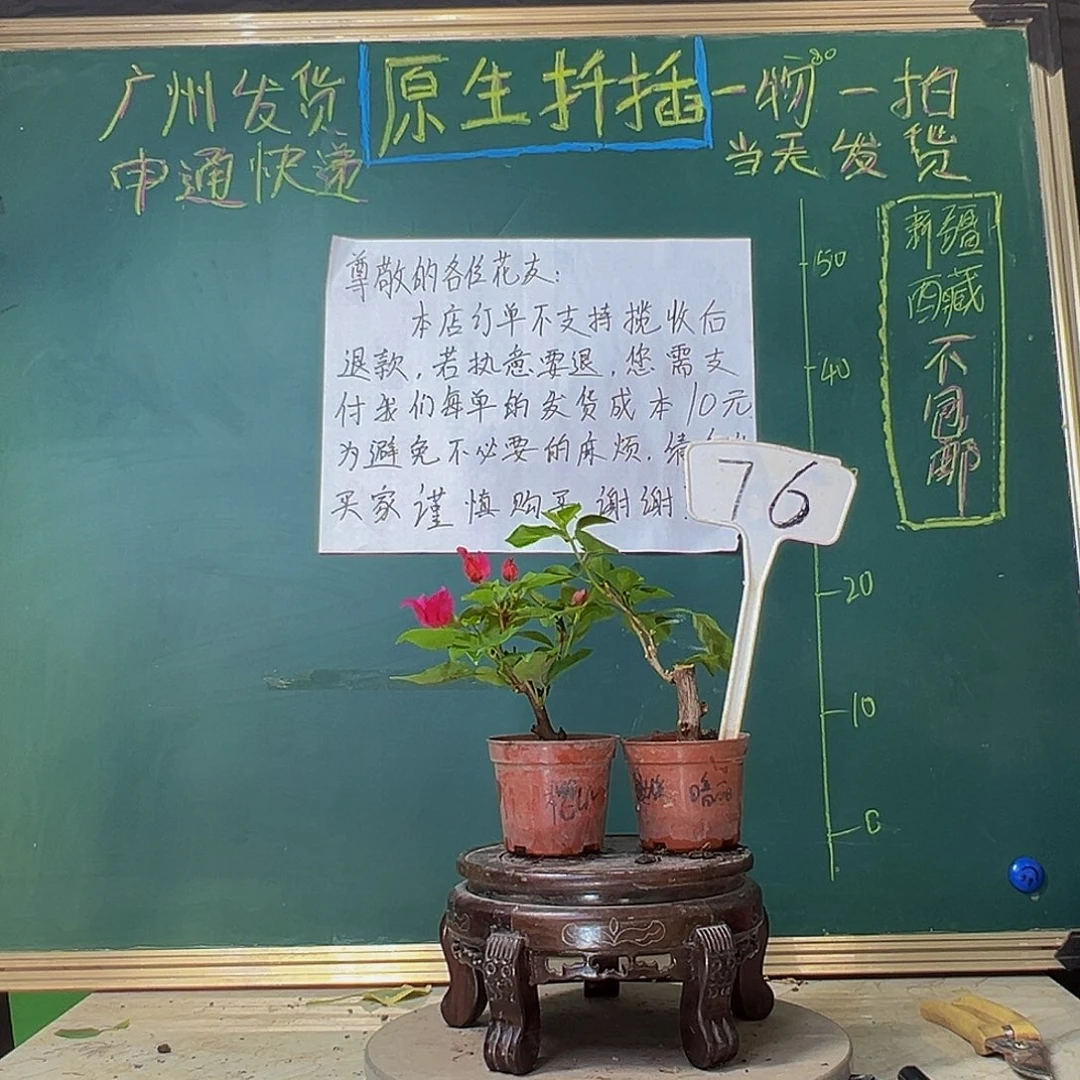 广州发货
申通快递
原生扦插
一物一拍
当天发货
新疆
西藏
不
包
邮
尊敬的各位花友:
本店订单不支持揽收后
退款,若执意要退,您需支
付我们每单的发货成本10元
为避免不必要的麻烦.请
买家谨慎购买 谢谢!
76
50
40
20
10
0